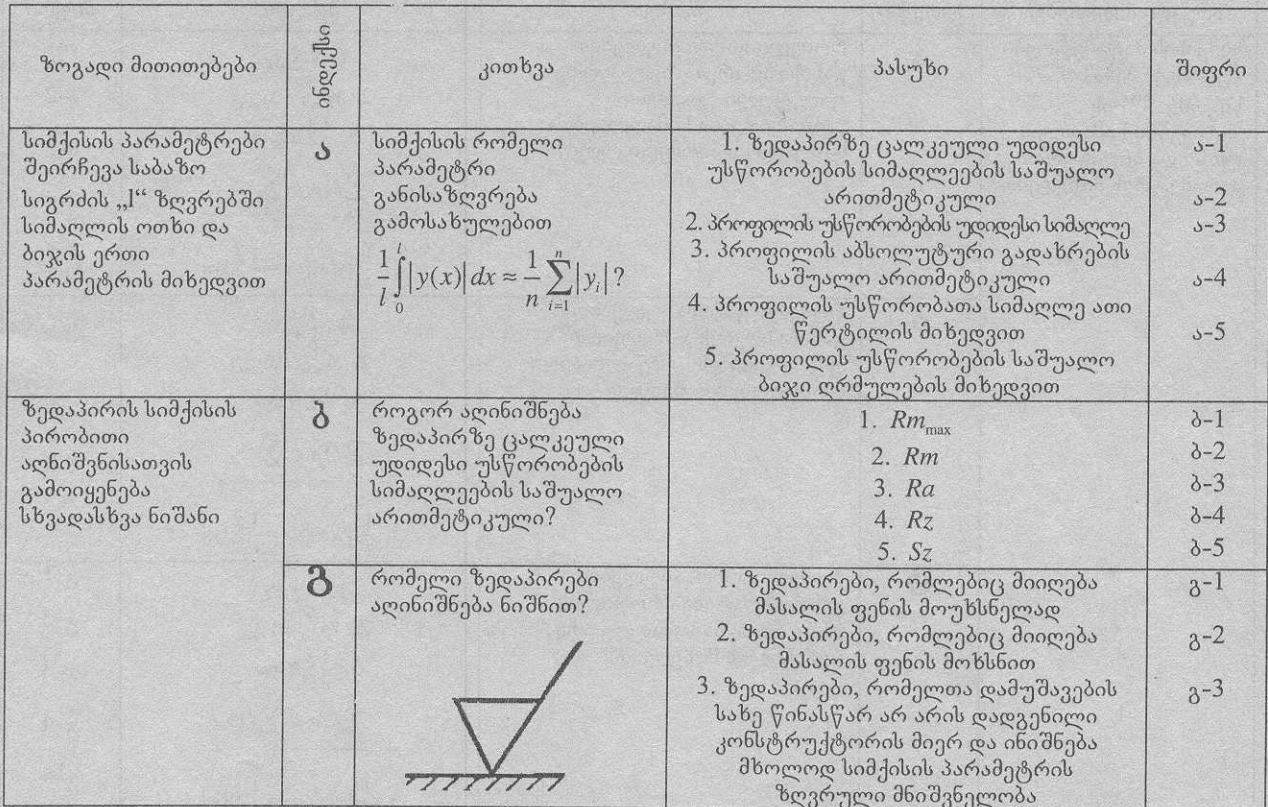 ზოგადი მითითებები
ინდექსი
კითხვა
პასუხი
შიფრი
სიმქისის პარამეტრები
შეირჩევა საბაზო
სიგრძის „l“ ზღვრებში
სიმაღლის ოთხი და
ბიჯის ერთი
პარამეტრის მიხედვით
ა
სიმქისის რომელი
პარამეტრი
განისაზღვრება
გამოსახულებით
$\frac{1}{l}\int_{0}^{l}|y(x)|\,dx \approx \frac{1}{n}\sum_{i=1}^{n}|y_i|$ ?
1. ზედაპირზე ცალკეული უდიდესი
უსწორობების სიმაღლეების საშუალო
არითმეტიკული
2. პროფილის უსწორობების უდიდესი სიმაღლე
3. პროფილის აბსოლუტური გადახრების
საშუალო არითმეტიკული
4. პროფილის უსწორობათა სიმაღლე ათი
წერტილის მიხედვით
5. პროფილის უსწორობების საშუალო
ბიჯი ღრმულების მიხედვით
ა-1
ა-2
ა-3
ა-4
ა-5
ზედაპირის სიმქისის
პირობითი
აღნიშვნისათვის
გამოიყენება
სხვადასხვა ნიშანი
ბ
როგორ აღინიშნება
ზედაპირზე ცალკეული
უდიდესი უსწორობების
სიმაღლეების საშუალო
არითმეტიკული?
1. Rm_max
2. Rm
3. Ra
4. Rz
5. Sz
ბ-1
ბ-2
ბ-3
ბ-4
ბ-5
გ
რომელი ზედაპირები
აღინიშნება ნიშნით?
1. ზედაპირები, რომლებიც მიიღება
მასალის ფენის მოუხსნელად
2. ზედაპირები, რომლებიც მიიღება
მასალის ფენის მოხსნით
3. ზედაპირები, რომელთა დამუშავების
სახე წინასწარ არ არის დადგენილი
კონსტრუქტორის მიერ და ინიშნება
მხოლოდ სიმქისის პარამეტრის
ზღვრული მნიშვნელობა
გ-1
გ-2
გ-3